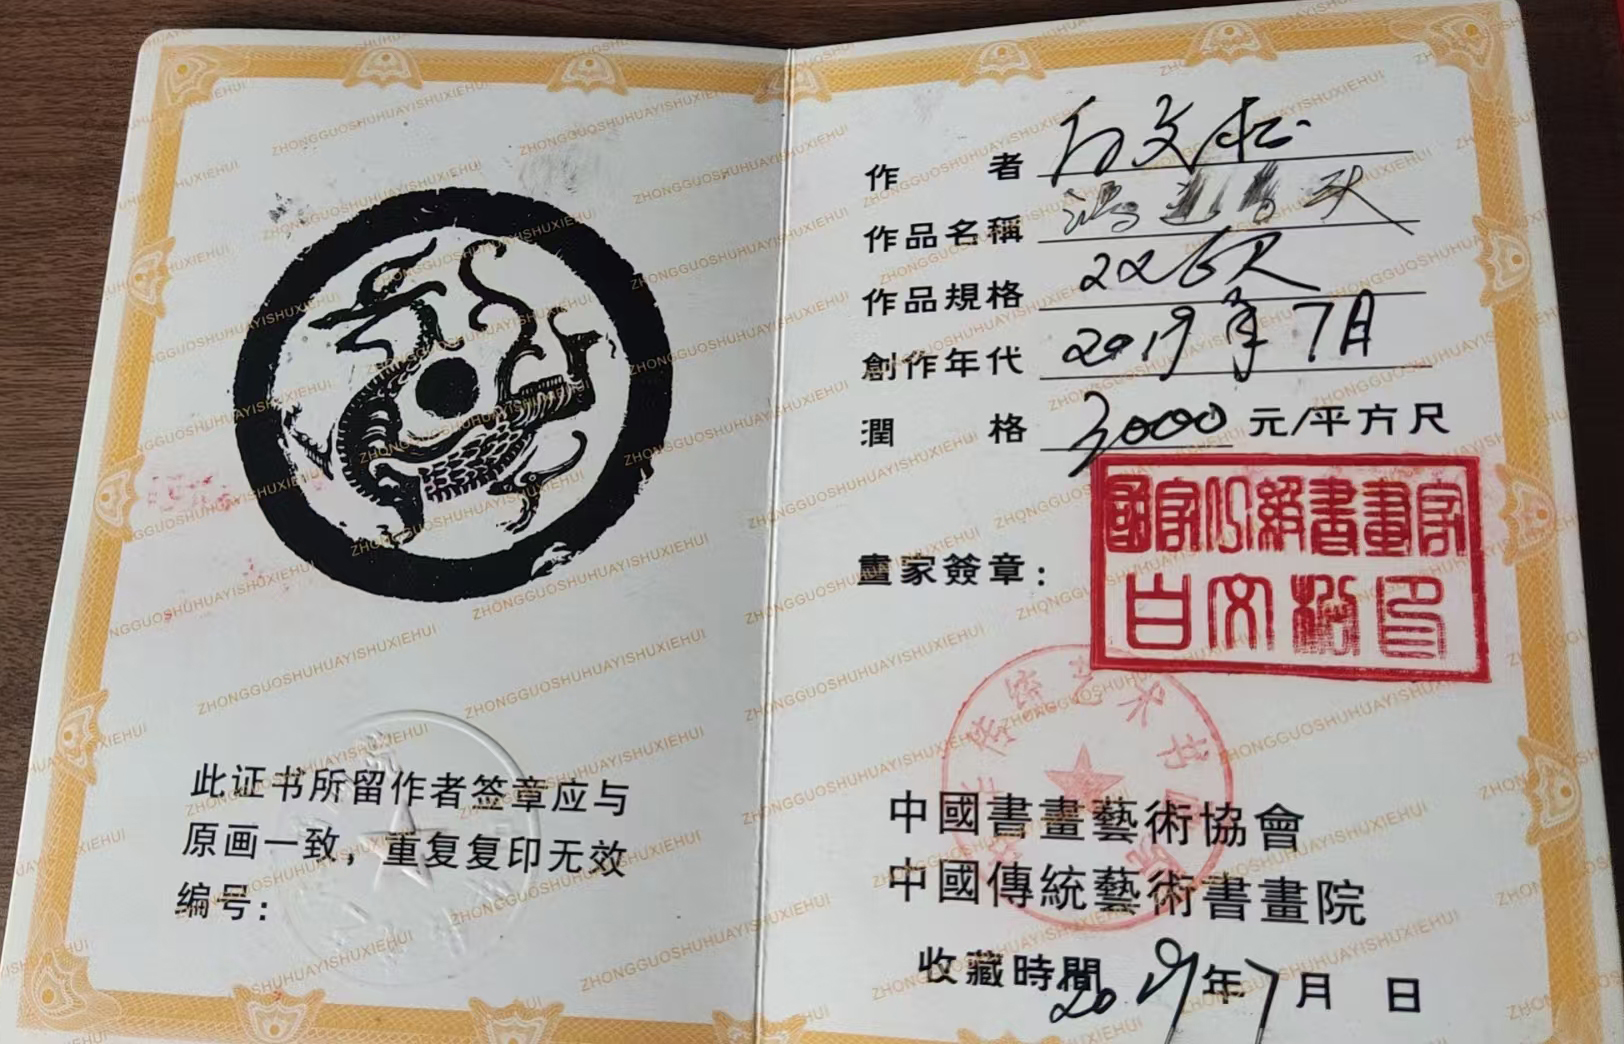 此证书所留作者签章应与
原画一致，重复复印无效
编号：
作者 白文松
作品名稱 鴻運當天
作品規格 226尺
創作年代 2019年7月
潤格 3000 元/平方尺
畫家簽章：
國家一級書畫家
白文松印
中國書畫藝術協會
中國傳統藝術書畫院
收藏時間 2019年7月 日
ZHONGGUOSHUHUAYISHUXIEHUI